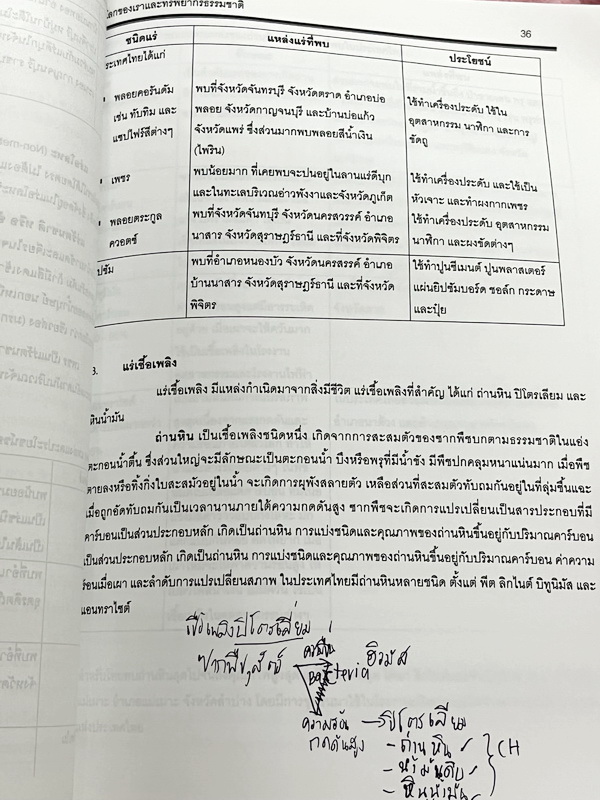 โลกของเราและทรัพยากรธรรมชาติ
36
ชนิดแร่ แหล่งแร่ที่พบ ประโยชน์
ประเทศไทยได้แก่
พลอยคอรันดัม พบที่จังหวัดจันทรบุรี จังหวัดตราด อำเภอบ่อ ใช้ทำเครื่องประดับ ใช้ใน
เช่น ทับทิม และ พลอย จังหวัดกาญจนบุรี และบ้านบ่อแก้ว อุตสาหกรรม นาฬิกา และการ
แซปไฟร์สีต่างๆ จังหวัดแพร่ ซึ่งส่วนมากพบพลอยสีน้ำเงิน ขัดถู
(ไพริน)
เพชร พบน้อยมาก ที่เคยพบจะปนอยู่ในลานแร่ดีบุก ใช้ทำเครื่องประดับ และใช้เป็น
และในทะเลบริเวณอ่าวพังงาและจังหวัดภูเก็ต หัวเจาะ และทำผงกากเพชร
พลอยตระกูล พบที่จังหวัดจันทบุรี จังหวัดนครสวรรค์ อำเภอ ใช้ทำเครื่องประดับ อุตสาหกรรม
ควอตซ์ นาสาร จังหวัดสุราษฎร์ธานี และที่จังหวัดพิจิตร นาฬิกา และผงขัดต่างๆ
ปซัม พบที่อำเภอหนองบัว จังหวัดนครสรรค์ อำเภอ ใช้ทำปูนซีเมนต์ ปูนพลาสเตอร์
บ้านนาสาร จังหวัดสุราษฎร์ธานี และที่จังหวัด แผ่นยิปซัมบอร์ด ชอล์ก กระดาษ
พิจิตร และปุ๋ย
3. แร่เชื้อเพลิง
แร่เชื้อเพลิง มีแหล่งกำเนิดมาจากสิ่งมีชีวิต แร่เชื้อเพลิงที่สำคัญ ได้แก่ ถ่านหิน ปิโตรเลียม และ
หินน้ำมัน
ถ่านหิน เป็นเชื้อเพลิงชนิดหนึ่ง เกิดจากการสะสมตัวของซากพืชบกตามธรรมชาติในแอ่ง
ตะกอนน้ำตื้น ซึ่งส่วนใหญ่จะมีลักษณะเป็นตะกอนน้ำ บึงหรือพรุที่มีน้ำขัง มีพืชปกคลุมหนาแน่นมาก เมื่อพืช
ตายลงหรือทิ้งกิ่งใบสะสมัวอยู่ในน้ำ จะเกิดการผุพังสลายตัว เหลือส่วนที่สะสมตัวทับถมกันอยู่ในที่ลุ่มชื้นแฉะ
เมื่อถูกอัดทับถมกันเป็นเวลานานภายใต้ความกดดันสูง ซากพืชจะเกิดการแปรเปลี่ยนเป็นสารประกอบที่มี
คาร์บอนเป็นส่วนประกอบหลัก เกิดเป็นถ่านหิน การแบ่งชนิดและคุณภาพของถ่านหินขึ้นอยู่กับปริมาณคาร์บอน
เป็นส่วนประกอบหลัก เกิดเป็นถ่านหิน การแบ่งชนิดและคุณภาพของถ่านหินขึ้นอยู่กับปริมาณคาร์บอน ค่าความ
ร้อนเมื่อเผา และลำดับการแปรเปลี่ยนสภาพ ในประเทศไทยมีถ่านหินหลายชนิด ตั้งแต่ พีต ลิกไนต์ บิทูนิมัส และ
แอนทราไซต์
เชื้อเพลิงปิโตรเลี่ยม
ซากพืช,สัตว์ Bacteria ฮิวมัส
ความร้อน → ปิโตรเลียม
กดดันสูง - ถ่านหิน ✓ CH
- น้ำมันดิบ ✓
- หินน้ำมัน ✓